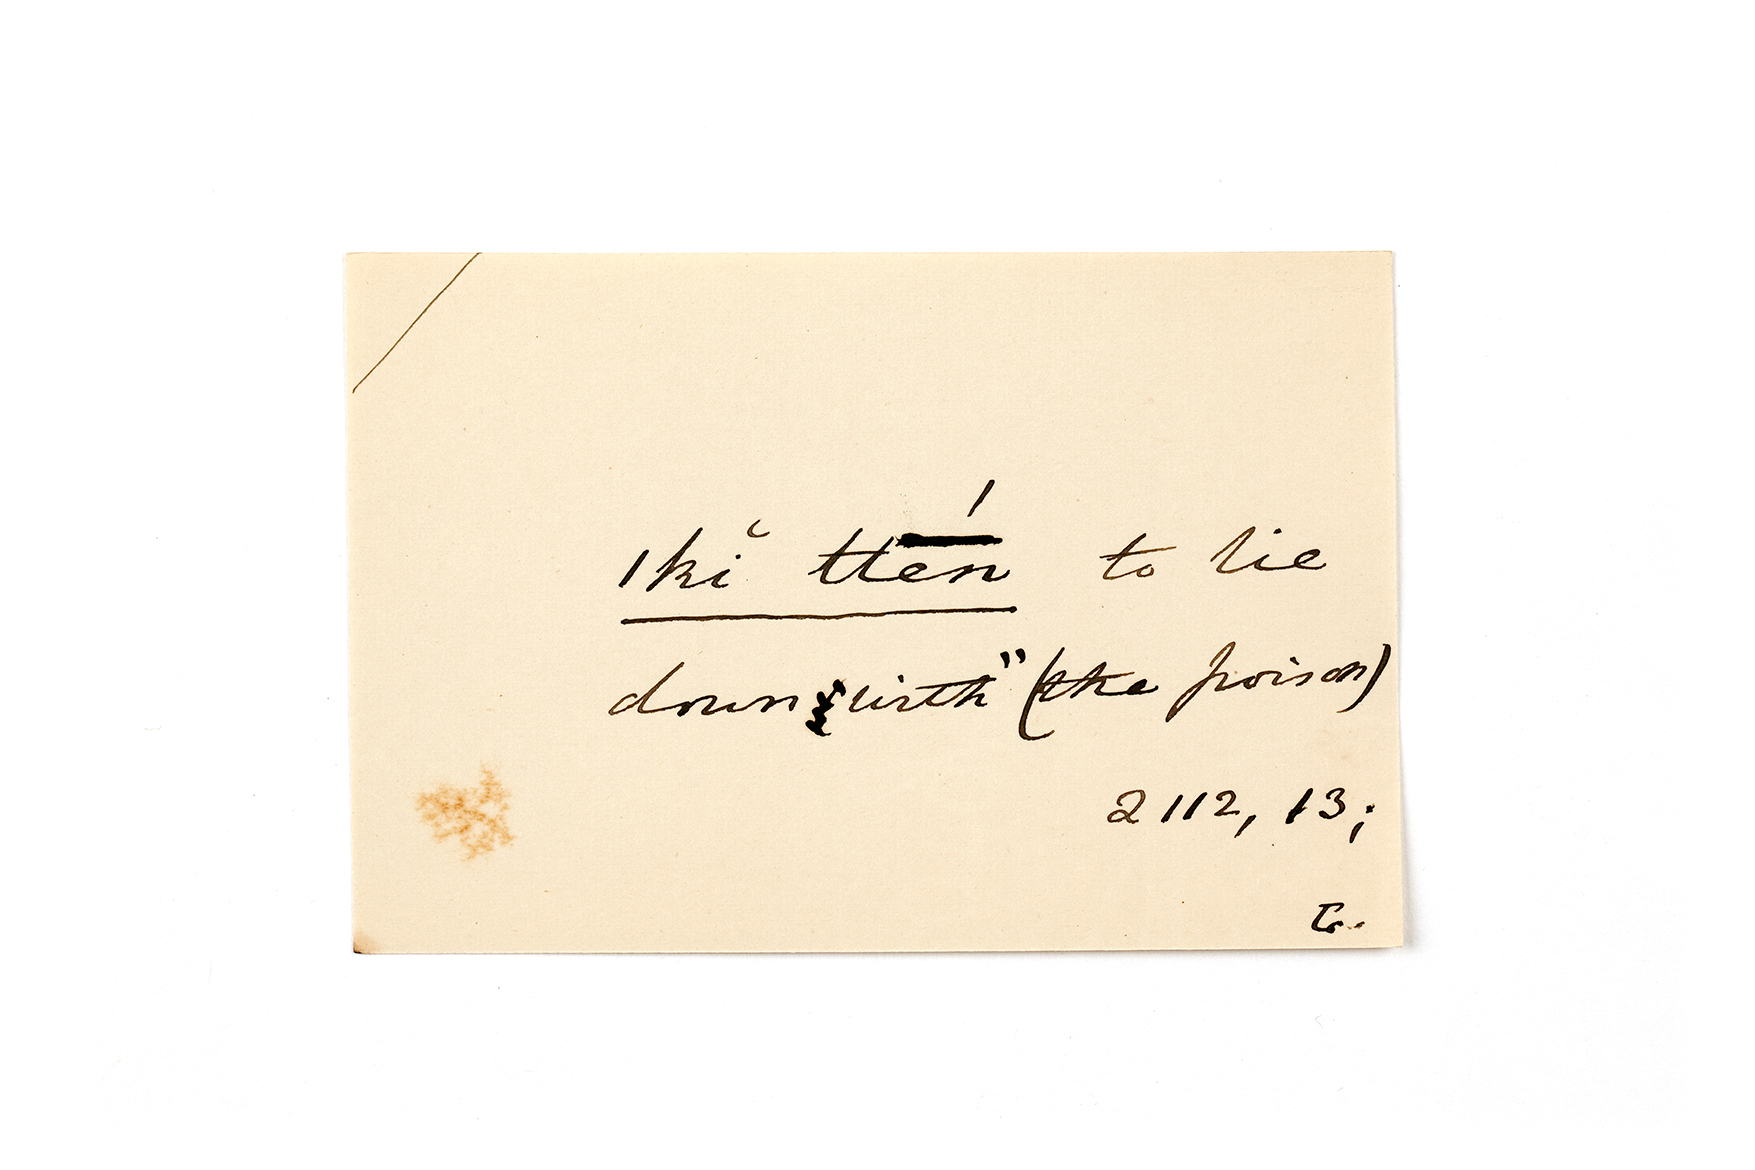 ǀkĭ ttḗn to lie
down with" (the poison)
2112, 13;
G.